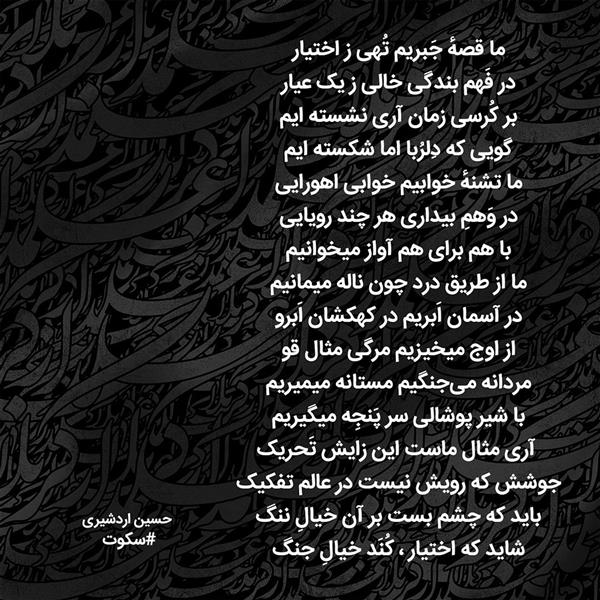 ما قصهٔ جَبریم تُهی ز اختیار
در فَهم بندگی خالی ز یک عیار
بر کُرسی زمان آری نشسته ایم
گویی که دِلرُبا اما شکسته ایم
ما تشنهٔ خوابیم خوابی اهورایی
در وَهمِ بیداری هر چند رویایی
با هم برای هم آواز میخوانیم
ما از طریق درد چون ناله میمانیم
در آسمان اَبریم در کهکشان اَبرو
از اوج میخیزیم مرگی مثال قو
مردانه می‌جنگیم مستانه میمیریم
با شیر پوشالی سر پَنجِه میگیریم
آری مثال ماست این زایش تَحریک
جوشش که رویش نیست در عالم تفکیک
باید که چشم بست بر آن خیالِ ننگ
شاید که اختیار ، کُنَد خیالِ جنگ
حسین اردشیری
#سکوت